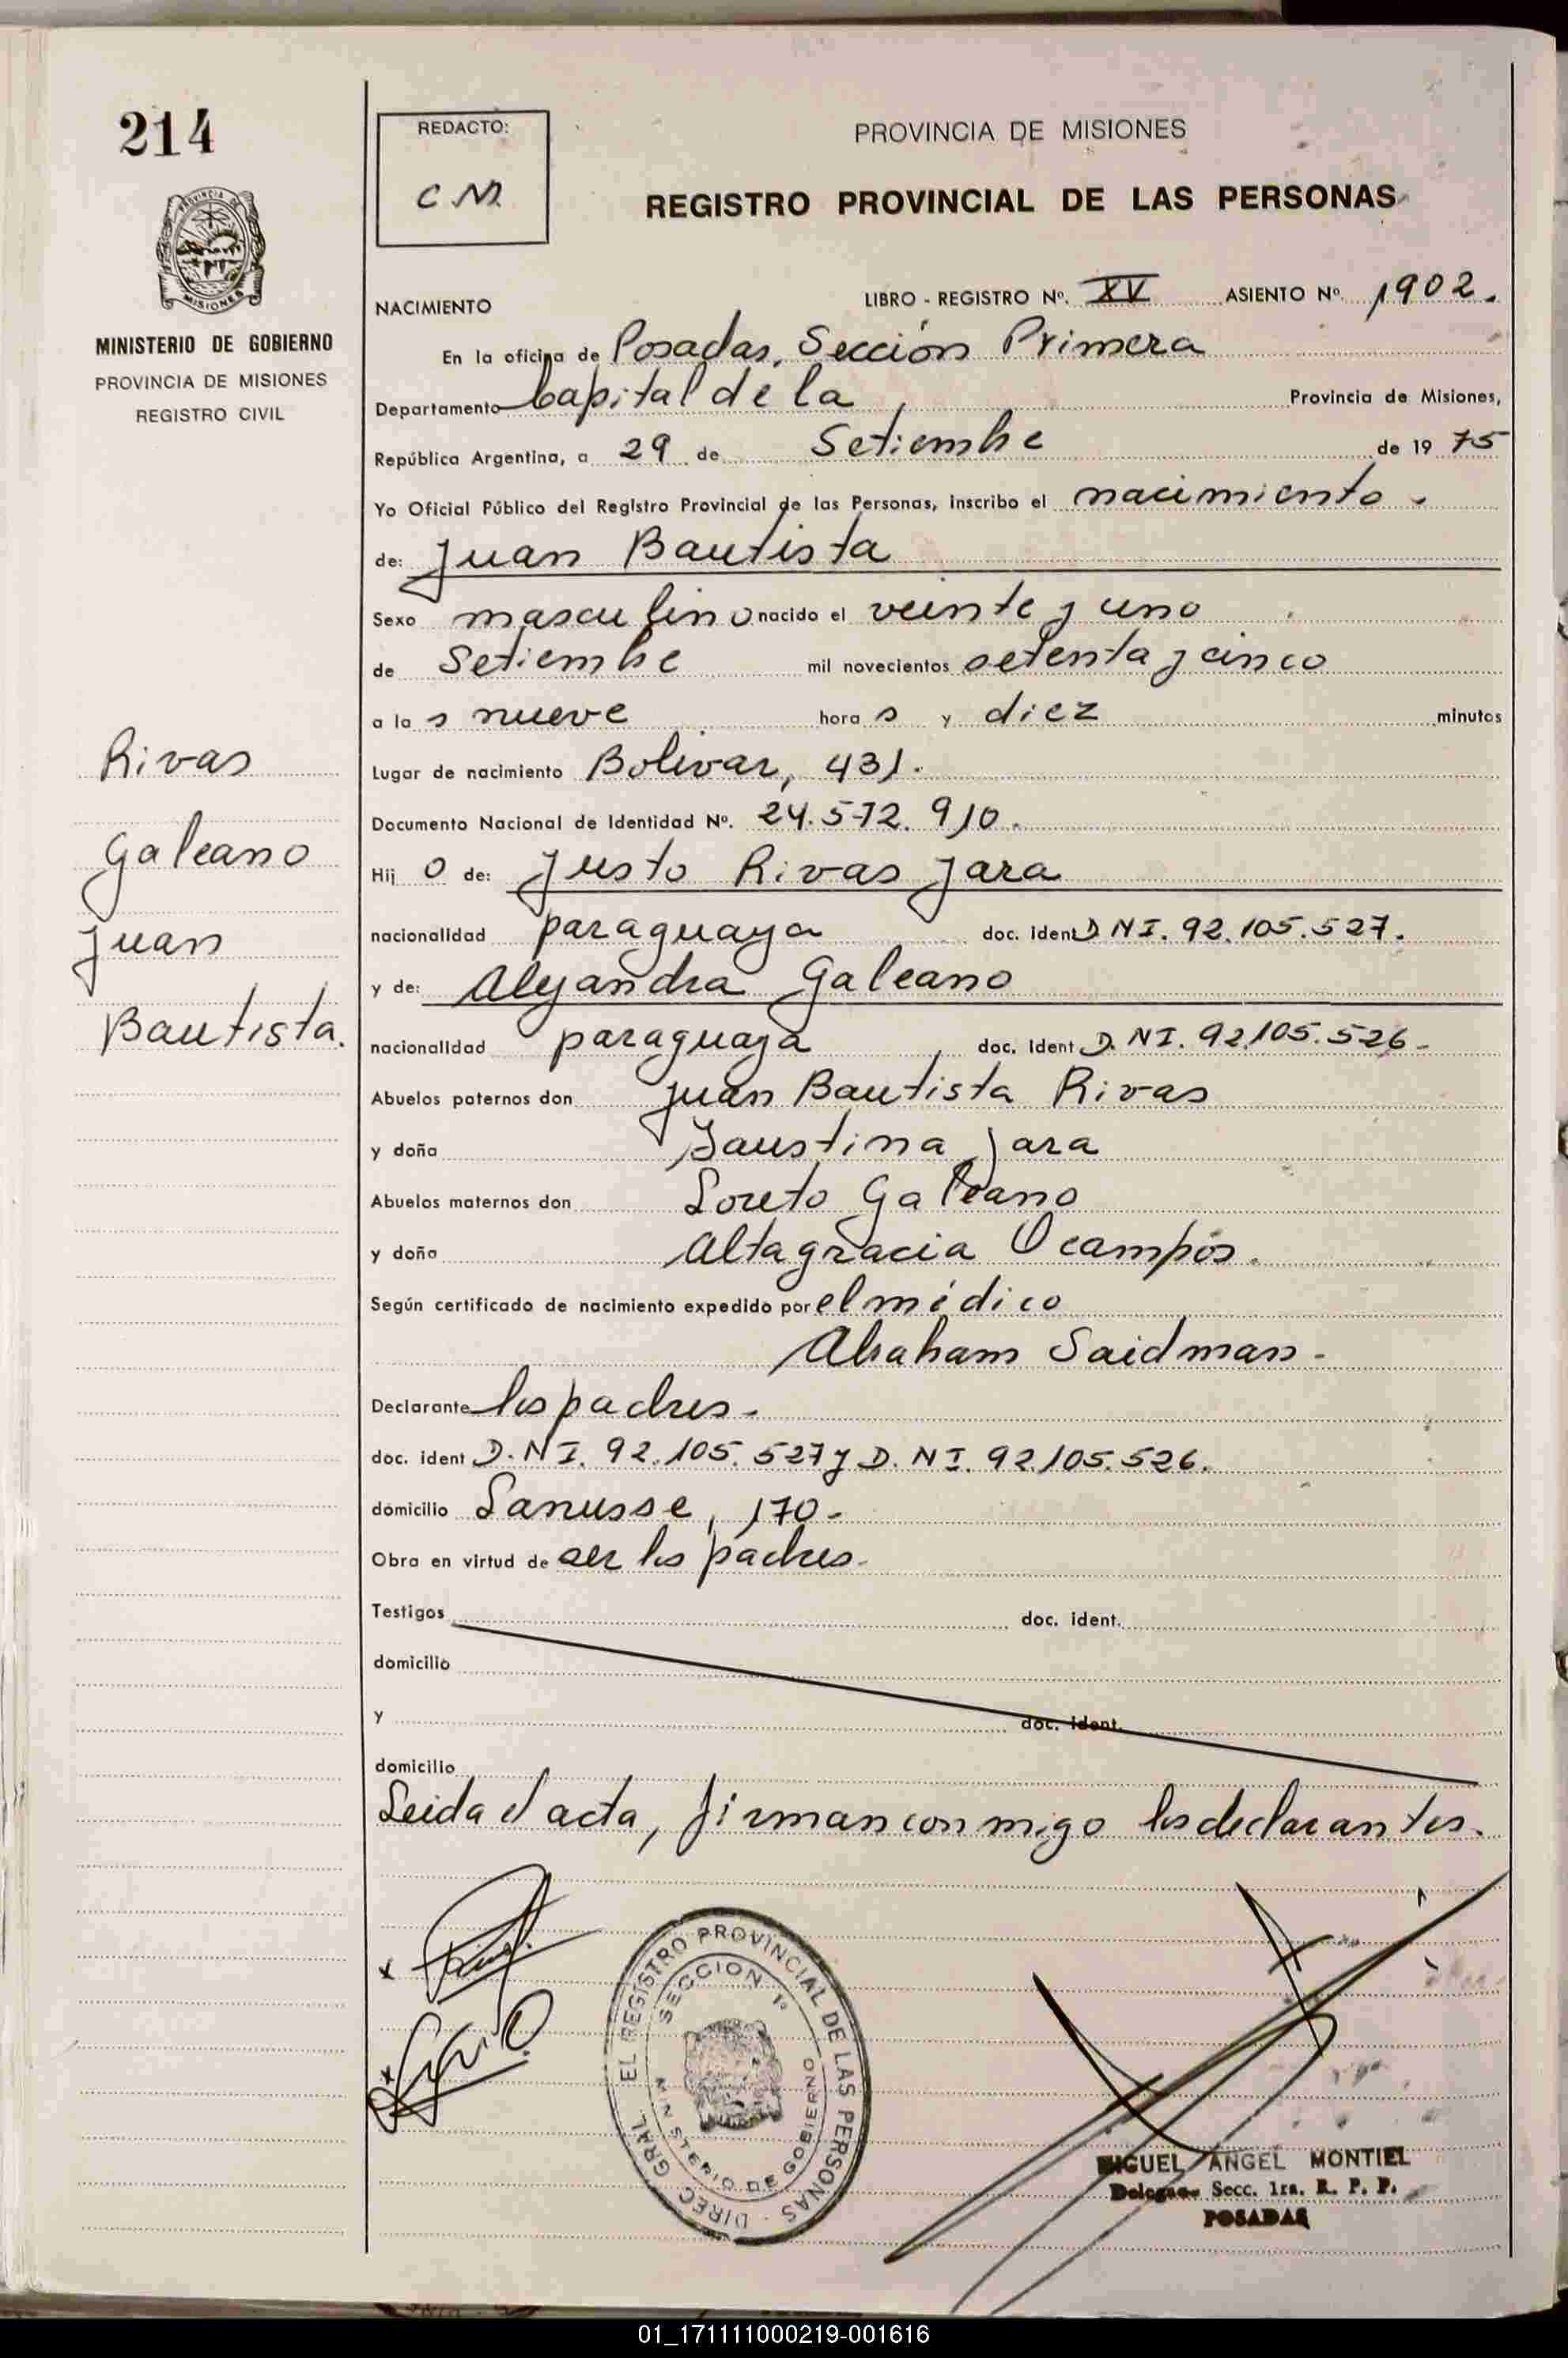 214
REDACTO:
C.M.
PROVINCIA DE MISIONES
REGISTRO PROVINCIAL DE LAS PERSONAS
MISIONES
MINISTERIO DE GOBIERNO
PROVINCIA DE MISIONES
REGISTRO CIVIL
NACIMIENTO LIBRO - REGISTRO Nº. XV ASIENTO Nº. 1902.
En la oficina de Posadas, Sección Primera
Departamento Capital de la Provincia de Misiones,
República Argentina, a 29 de Setiembre de 1975
Yo Oficial Público del Registro Provincial de las Personas, inscribo el nacimiento.
de: Juan Bautista
Sexo masculino nacido el veinte y uno
de Setiembre mil novecientos setenta y cinco
a las nueve horas y diez minutos
Lugar de nacimiento Bolivar, 431.
Documento Nacional de Identidad Nº. 24.572.910.
Hijo de: Justo Rivas Jara
nacionalidad paraguaya doc. ident D.N.I. 92.105.527.
y de: Alejandra Galeano
nacionalidad paraguaya doc. ident D.N.I. 92.105.526-
Abuelos paternos don Juan Bautista Rivas
y doña Faustina Jara
Abuelos maternos don Loreto Galeano
y doña Altagracia Ocampos.
Según certificado de nacimiento expedido por el médico
Abraham Saidman-
Declarante los padres-
doc. ident D.N.I. 92.105.527 y D.N.I. 92.105.526.
domicilio Lanusse, 170-
Obra en virtud de ser los padres-
Testigos doc. ident.
domicilio
y doc. ident.
domicilio
Leida el acta, firman conmigo los declarantes.
Rivas
Galeano
Juan
Bautista.
DIREC. GRAL. EL REGISTRO PROVINCIAL DE LAS PERSONAS
SECCION 1º
MINISTERIO DE GOBIERNO
MIGUEL ANGEL MONTIEL
Delegado Secc. 1ra. R. P. P.
POSADAS
01_171111000219-001616